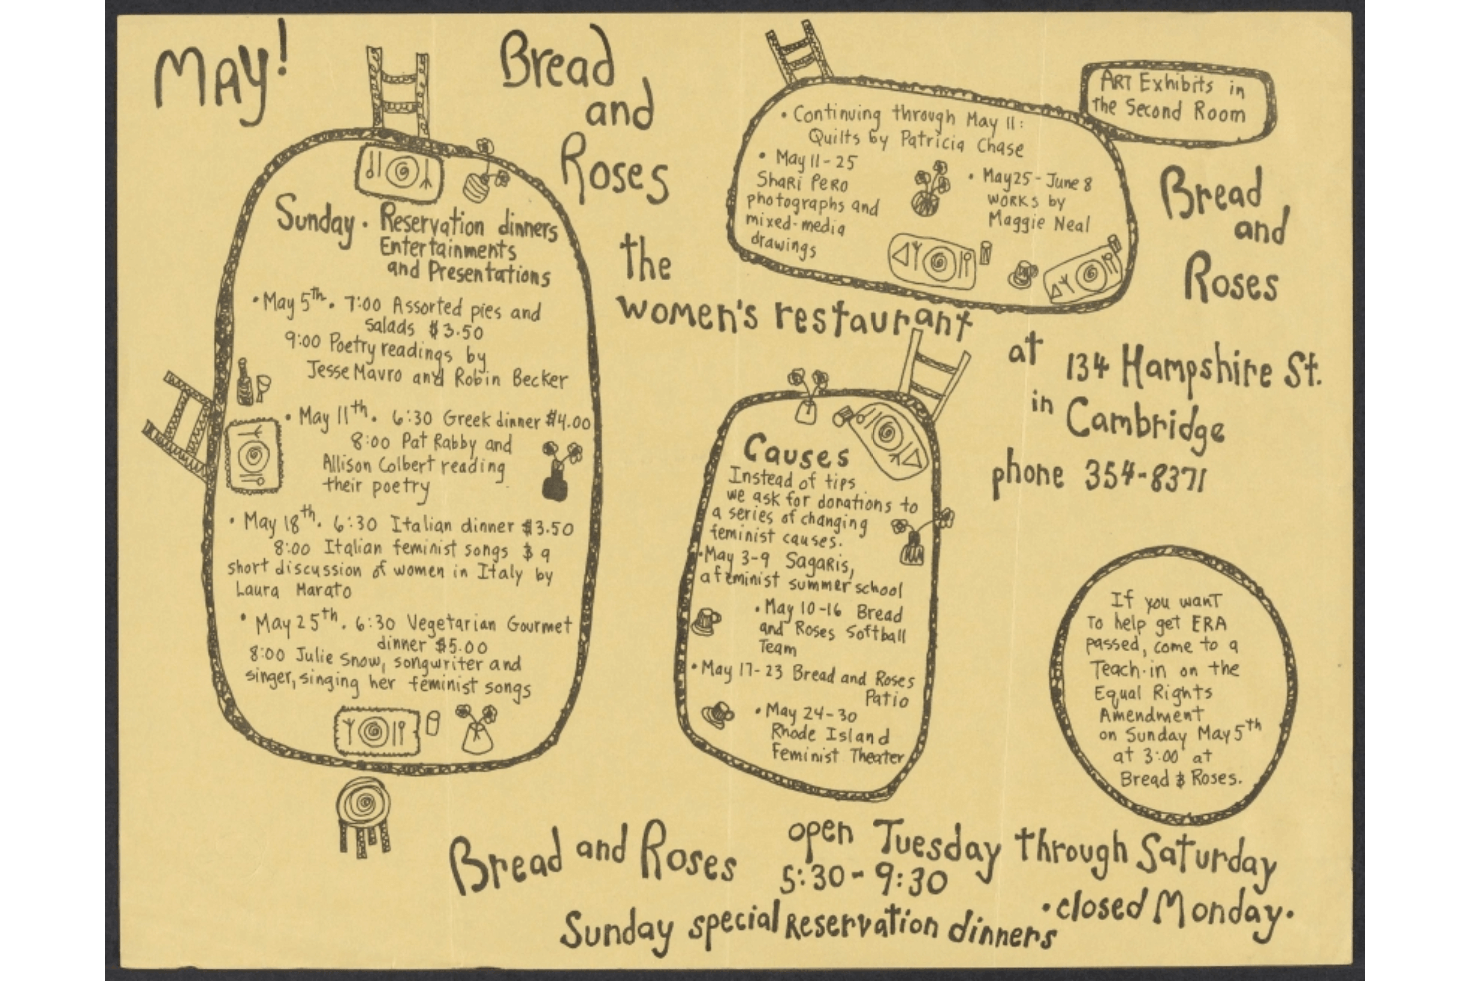 MAY!
Bread
and
Roses
the
women's restaurant
Sunday · Reservation dinners
Entertainments
and Presentations
• May 5th. 7:00 Assorted pies and
salads $3.50
9:00 Poetry readings by
Jesse Mavro and Robin Becker
• May 11th. 6:30 Greek dinner $4.00
8:00 Pat Rabby and
Allison Colbert reading
their poetry
• May 18th. 6:30 Italian dinner $3.50
8:00 Italian feminist songs & a
short discussion of women in Italy by
Laura Marato
• May 25th. 6:30 Vegetarian Gourmet
dinner $5.00
8:00 Julie Snow, songwriter and
singer, singing her feminist songs
ART Exhibits in
the Second Room
• Continuing through May 11:
Quilts by Patricia Chase
• May 11-25
Shari Pero
photographs and
mixed-media
drawings
• May 25 - June 8
works by
Maggie Neal
Bread
and
Roses
at 134 Hampshire St.
in Cambridge
phone 354-8371
Causes
Instead of tips
we ask for donations to
a series of changing
feminist causes.
• May 3-9 Sagaris,
a feminist summer school
• May 10-16 Bread
and Roses Softball
Team
• May 17-23 Bread and Roses
Patio
• May 24-30
Rhode Island
Feminist Theater
If you want
to help get ERA
passed, come to a
Teach-in on the
Equal Rights
Amendment
on Sunday May 5th
at 3:00 at
Bread & Roses.
Bread and Roses open Tuesday through Saturday
5:30 - 9:30
• closed Monday •
Sunday special Reservation dinners